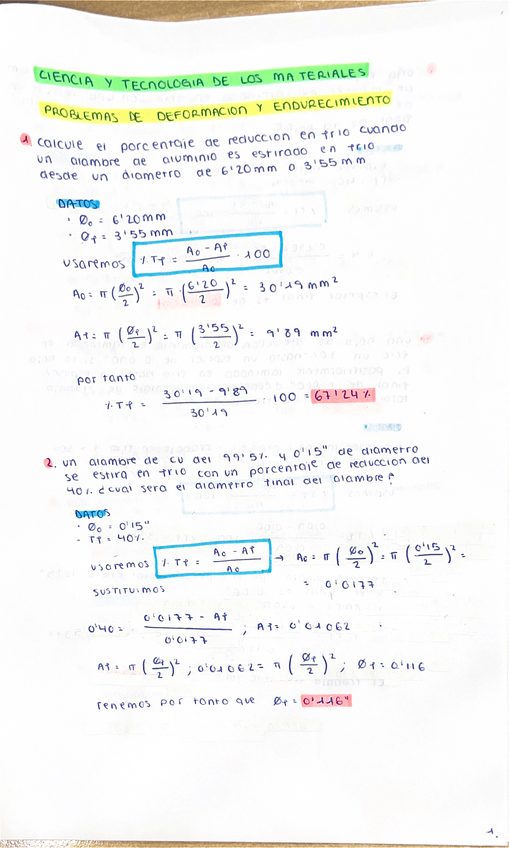 CIENCIA Y TECNOLOGIA DE LOS MATERIALES
PROBLEMAS DE DEFORMACION Y ENDURECIMIENTO
1 calcule el porcentaje de reduccion en frio cuando
un alambre de aluminio es estirado en frio
desde un diametro de 6'20mm a 3'55mm
DATOS
· Ø₀ = 6'20mm
· Øf = 3'55mm
usaremos %Tf = A₀ - Af / A₀ · 100
A₀ = π (Ø₀/2)² = π · (6'20/2)² = 30'19 mm²
Af = π (Øf/2)² = π (3'55/2)² = 9'89 mm²
por tanto
%Tf = 30'19 - 9'89 / 30'19 · 100 = 67'24%
2. un alambre de cu del 99'5% y 0'15" de diametro
se estira en frio con un porcentaje de reduccion del
40% ¿cual sera el diametro final del alambre?
DATOS
· Ø₀ = 0'15"
- Tf = 40%
usaremos %Tf = A₀ - Af / A₀ → A₀ = π (Ø₀/2)² = π (0'15/2)² =
= 0'0177
sustituimos
0'40 = 0'0177 - Af / 0'0177 ; Af = 0'01062
Af = π (Øf/2)² ; 0'01062 = π (Øf/2)² ; Øf = 0'116
Tenemos por tanto que Øf = 0'116"
1.